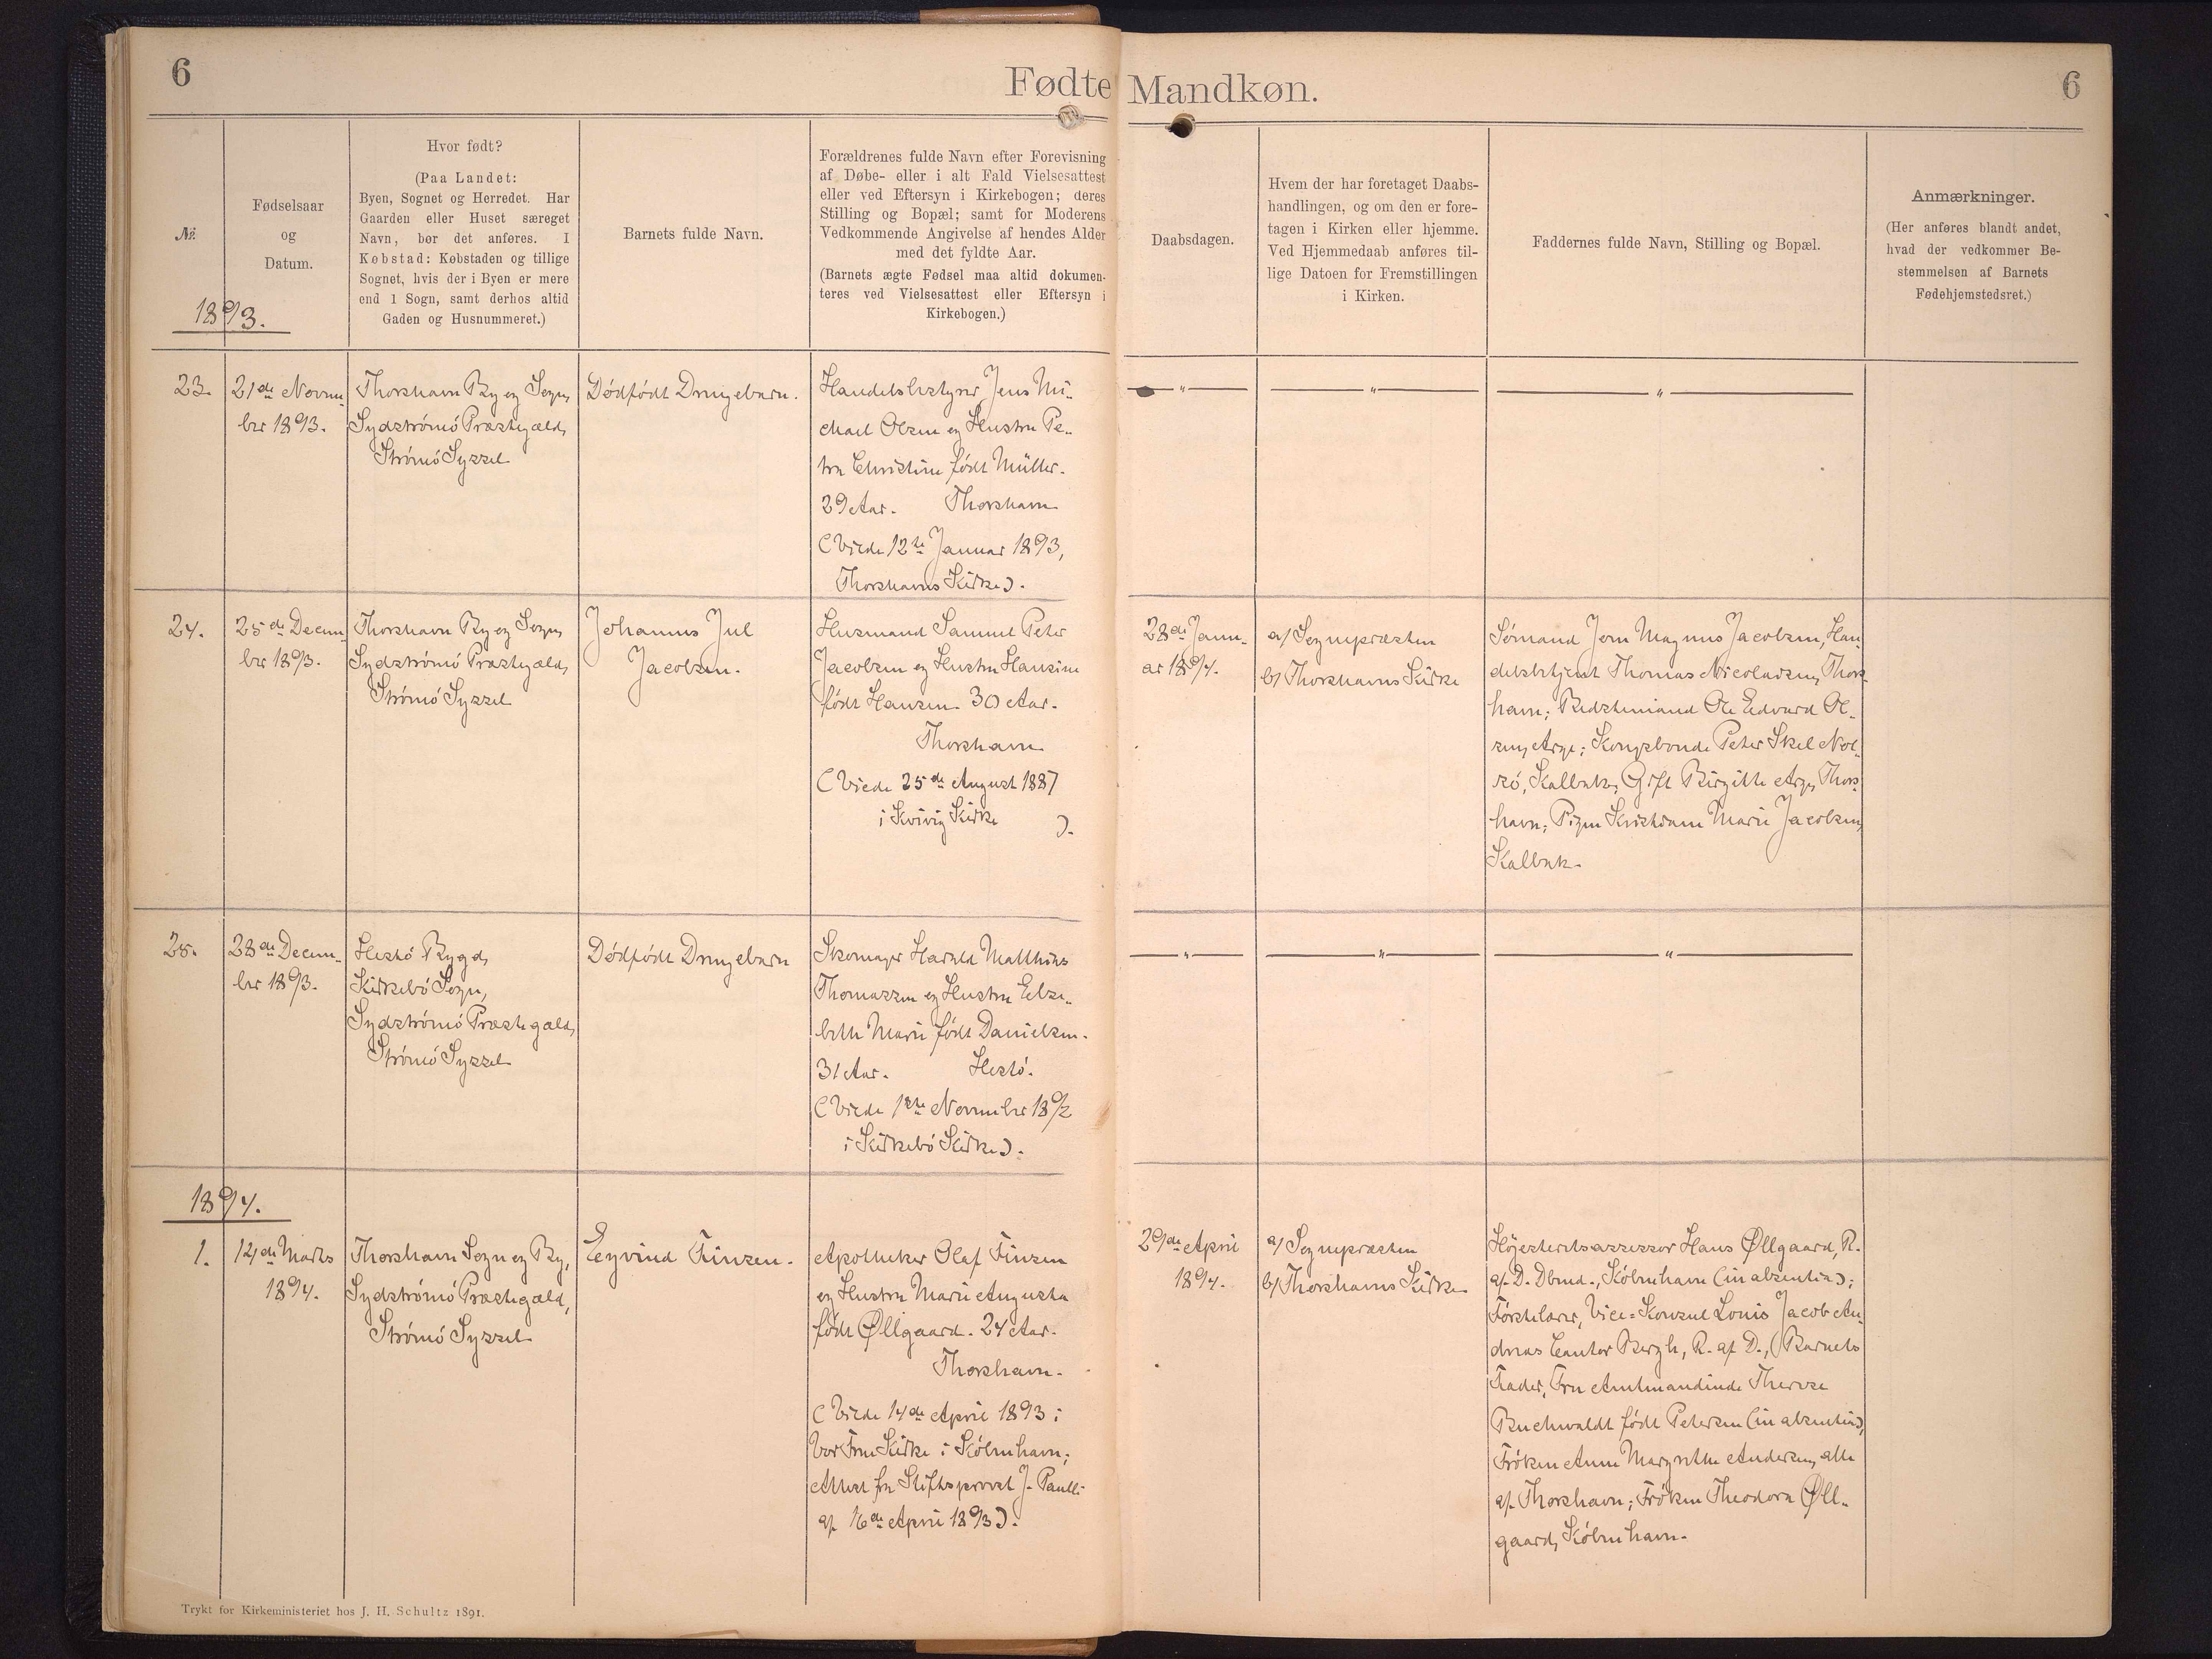 6
Fødte Mandkøn.
6
№
Fødselsaar
og
Datum.
Hvor født?
(Paa Landet:
Byen, Sognet og Herredet. Har
Gaarden eller Huset særeget
Navn, bør det anføres. I
Købstad: Købstaden og tillige
Sognet, hvis der i Byen er mere
end 1 Sogn, samt derhos altid
Gaden og Husnummeret.)
Barnets fulde Navn.
Forældrenes fulde Navn efter Forevisning
af Døbe- eller i alt Fald Vielsesattest
eller ved Eftersyn i Kirkebogen; deres
Stilling og Bopæl; samt for Moderens
Vedkommende Angivelse af hendes Alder
med det fyldte Aar.
(Barnets ægte Fødsel maa altid dokumen-
teres ved Vielsesattest eller Eftersyn i
Kirkebogen.)
Daabsdagen.
Hvem der har foretaget Daabs-
handlingen, og om den er fore-
tagen i Kirken eller hjemme.
Ved Hjemmedaab anføres til-
lige Datoen for Fremstillingen
i Kirken.
Faddernes fulde Navn, Stilling og Bopæl.
Anmærkninger.
(Her anføres blandt andet,
hvad der vedkommer Be-
stemmelsen af Barnets
Fødehjemstedsret.)
1893.
23.
21de Novem-
ber 1893.
Thorshavn By og Sogn,
Sydstrómó Præstegæld,
Strómó Syssel
Dødfødt Drengebarn.
Handelsbestyrer Jens Mi-
chael Olsen og Hustru Pe-
tra Christine født Müller.
29 Aar. Thorshavn
(Viede 12te Januar 1893,
Thorshavns Kirke).
— " —
— " —
— " —
24.
25de Decem-
ber 1893.
Thorshavn By og Sogn,
Sydstrómó Præstegæld,
Strómó Syssel
Johannes Jul
Jacobsen.
Husmand Samuel Peter
Jacobsen og Hustru Hansine
født Hansen. 30 Aar.
Thorshavn
(Viede 25de August 1887
i Kvivig Kirke ).
28de Janu-
ar 1894.
a/ Sognepræsten
b/ Thorshavns Kirke
Sómand Jens Magnus Jacobsen, Han-
delsbetjent Thomas Nicolaisen, Thors-
havn; Bedstemand Ole Edvard Ol-
sen, Arge; Kongsbonde Peter Skel Nol-
só, Kalbak; Gift Birgitte Arge, Thors-
havn; Pigen Kristiane Marie Jacobsen,
Kalbak.
25.
28de Decem-
ber 1893.
Hestó Bygd,
Kirkebó Sogn,
Sydstrómó Præstegæld,
Strómó Syssel
Dødfødt Drengebarn
Skomager Harald Matthias
Thomassen og Hustru Else-
beth Marie født Danielsen.
31 Aar. Hestó.
(Viede 18te November 1892
i Kirkebó Kirke).
— " —
— " —
— " —
1894.
1.
12de Marts
1894.
Thorshavn Sogn og By,
Sydstrómó Præstegæld,
Strómó Syssel
Eyvind Finsen.
Apotheker Olaf Finsen
og Hustru Marie Augusta
født Øllgaard. 24 Aar.
Thorshavn.
(Viede 14de April 1893 i
Vor Frue Kirke i Kóbenhavn;
Attest fra Stiftsprovst J. Paulli
af 16de April 1893).
29de April
1894.
a/ Sognepræsten
b/ Thorshavns Kirke
Hójesteretsassessor Hans Øllgaard, R.
af D. Dbmd., Kóbenhavn (in absentia);
Fórstelærer, Vice-Konsul Louis Jacob An-
dreas Cantor Bergh, R. af D., Barnets
Fader, Fru Amtmandinde Therese
Buchwaldt født Petersen (in absentia),
Fróken Anne Margrethe Andersen, alle
af Thorshavn; Fróken Theodora Øll-
gaard, Kóbenhavn.
Trykt for Kirkeministeriet hos J. H. Schultz 1891.